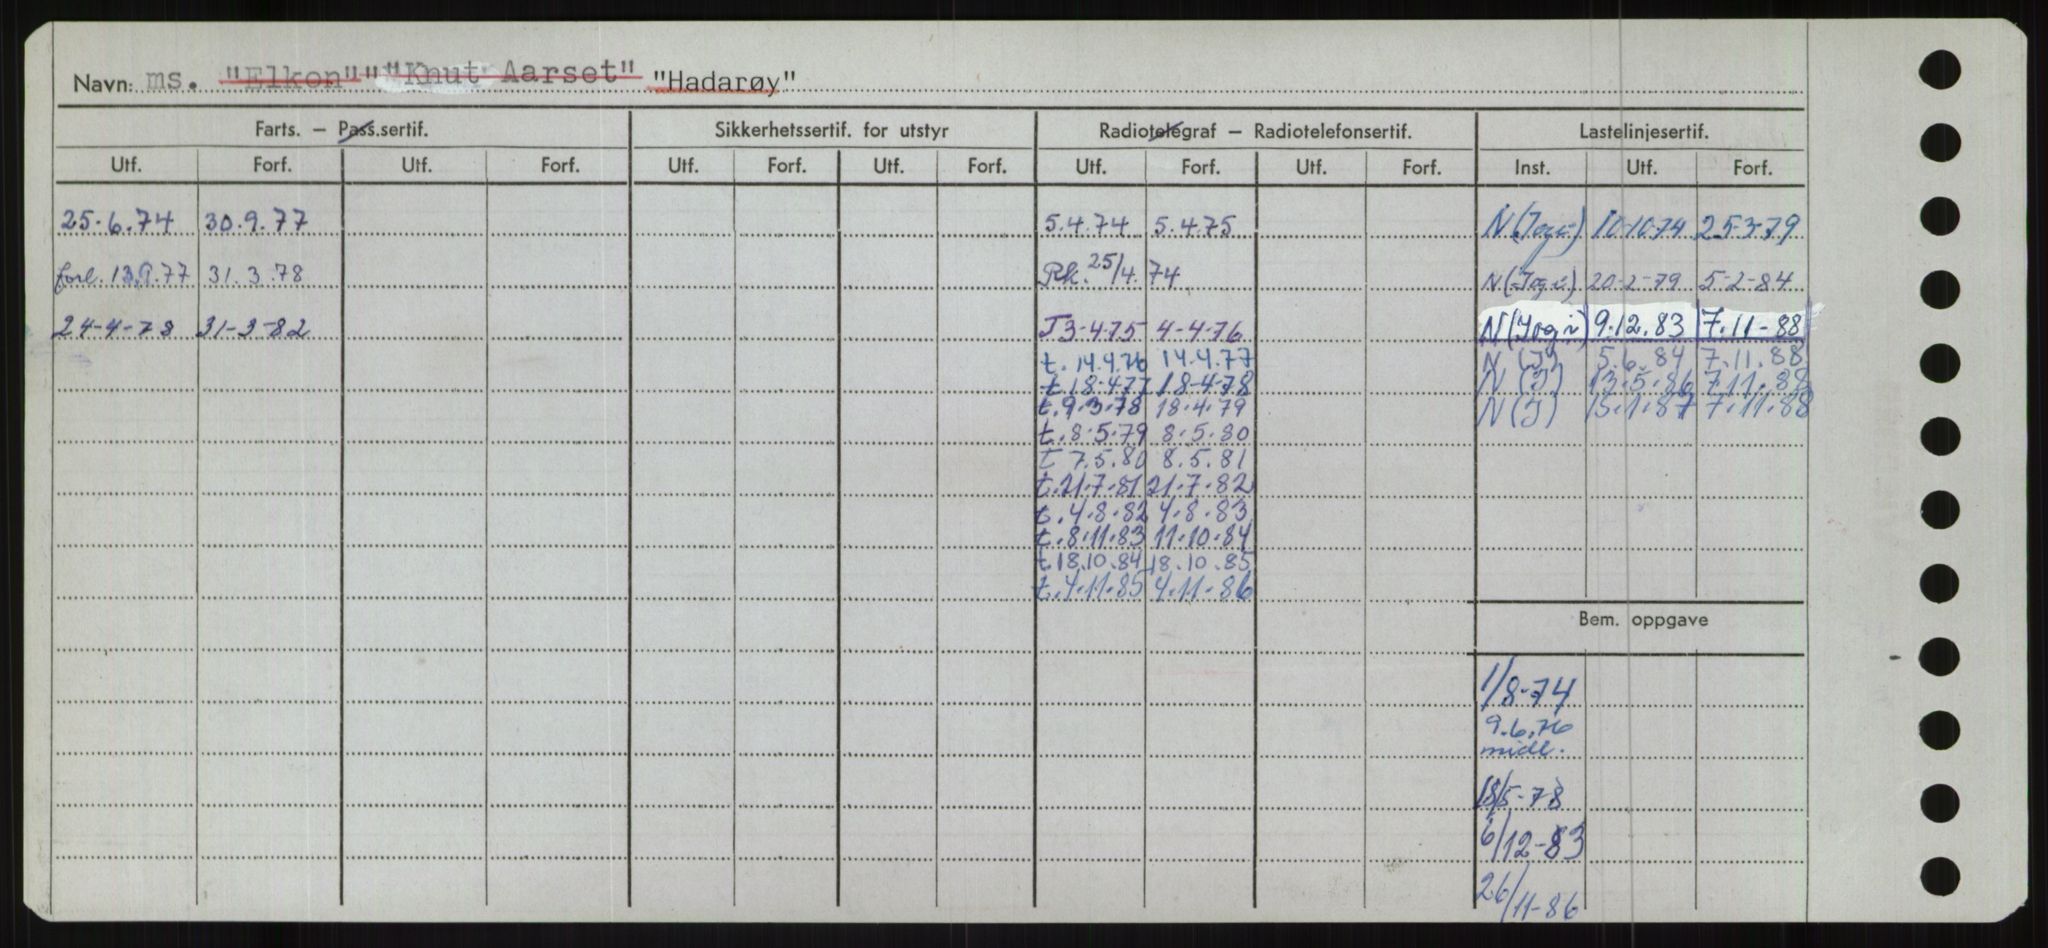 Navn: ms. "Elkon" "Knut Aarset" "Hadarøy"
Farts. – Pass.sertif. Sikkerhetssertif. for utstyr Radiotelegraf – Radiotelefonsertif. Lastelinjesertif.
Utf. Forf. Utf. Forf. Utf. Forf. Utf. Forf. Utf. Forf. Utf. Forf. Inst. Utf. Forf.
25.6.74 30.9.77 5.4.74 5.4.75 N 10-10-74 25-3-79
forl. 13.9.77 31.3.78 Rk. 25/4.74 N 20-2-79 5-2-84
24-4-78 31-3-82 T 3-4-75 4-4-76 N 9.12.83 7.11-88
t. 14.4.76 14.4.77 N (I) 5.6.84 7.11.88
t. 18-4-77 18-4-78 N (I) 13.5.86 7.11.88
t. 9.3.78 18.4.79 N (I) 15.1.87 7.11.88
t. 8.5.79 8.5.80
t 7.5.80 8.5.81
t. 21.7.81 21.7.82
t. 4.8.82 4.8.83
t. 8.11.83 11.10.84
t. 18.10.84 18.10.85
t. 4.11.85 4.11.86
Bem. oppgave
1/8-74
9.6.76
midl.
18/5-78
6/12-83
26/11-86